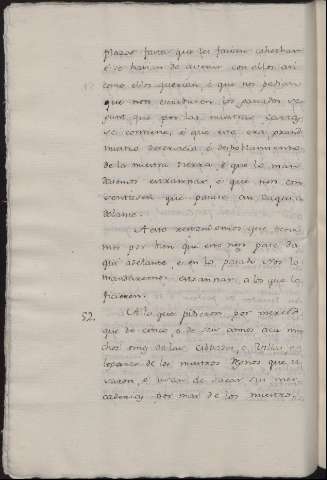 plazos fasta que les facien cohechar
é se havian de avenir con ellos asi
como ellos querian, é que nos pedian
que non
que por las nuestras cartas
é que eso era grand
nuestro deservicio é despoblamiento
de la nuestra tierra, é que lo man
dasemos escarmentar, é que non con
sentiesemos que pasase an daqui a
delante.
A esto respondemos que tene
mos por bien que eso non pase da
qui adelante, é en lo pasado Nos lo
mandaremos escarmentar, a los que lo
ficieron.
52. A lo que pidieron por merced
que de cinco, o de seis annos acá mu
chos omes de las Cibdades, e Villas, e
logares de los nuestros Regnos que u
saron, é usan de sacar sus mer
caderias por mar de los nuestros